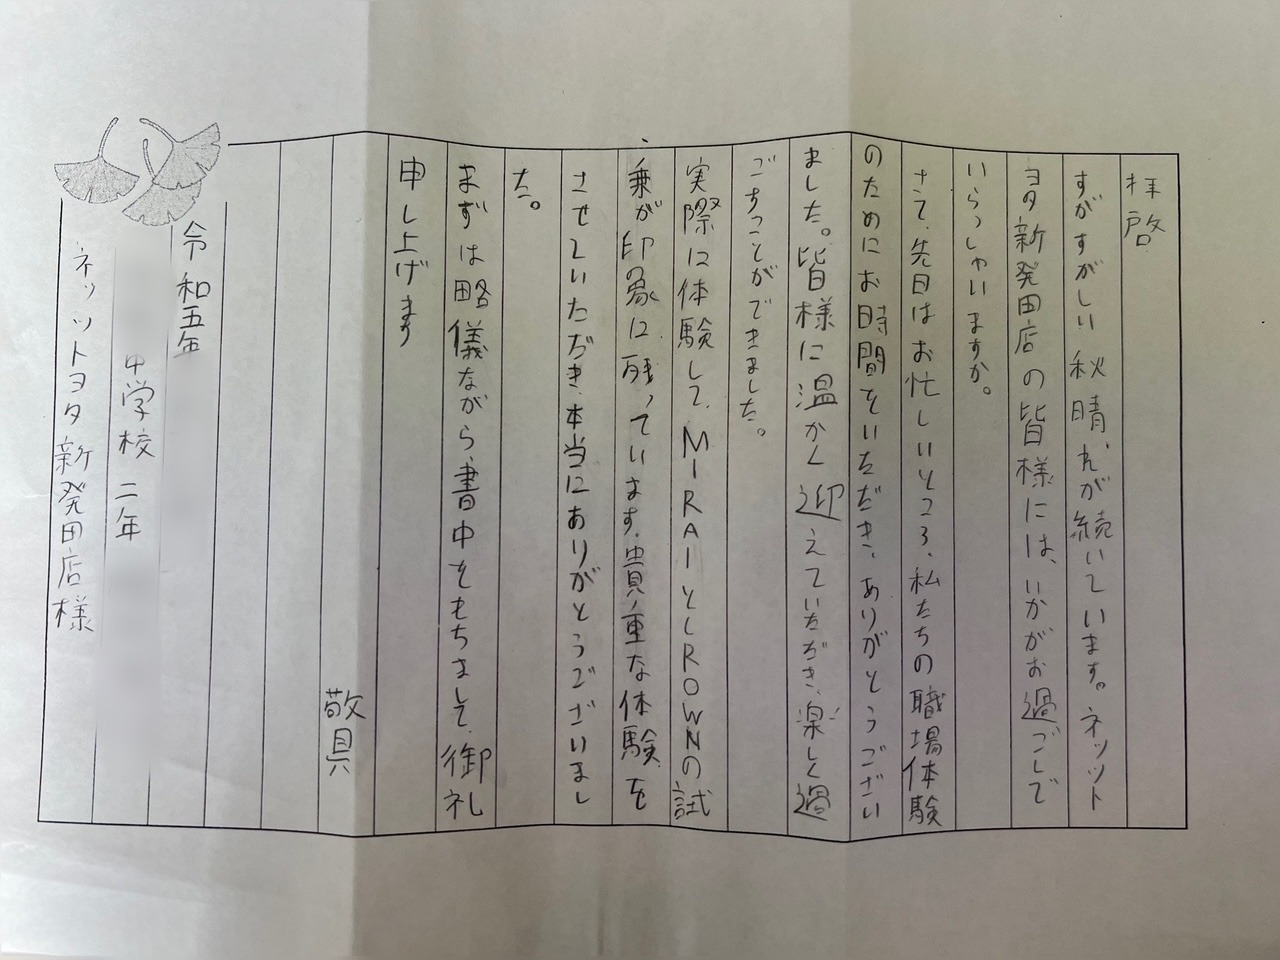 拝啓
すがすがしい秋晴れが続いています。ネッツト
ヨタ新発田店の皆様には、いかがお過ごしで
いらっしゃいますか。
さて、先日はお忙しいところ、私たちの職場体験
のためにお時間をいただき、ありがとうござい
ました。皆様に温かく迎えていただき、楽しく過
ごすことができました。
実際に体験して、MIRAIとCROWNの試
乗が印象に残っています。貴重な体験を
させていただき、本当にありがとうございまし
た。
まずは略儀ながら書中をもちまして、御礼
申し上げます
敬具
令和五年
中学校 二年
ネッツトヨタ新発田店様